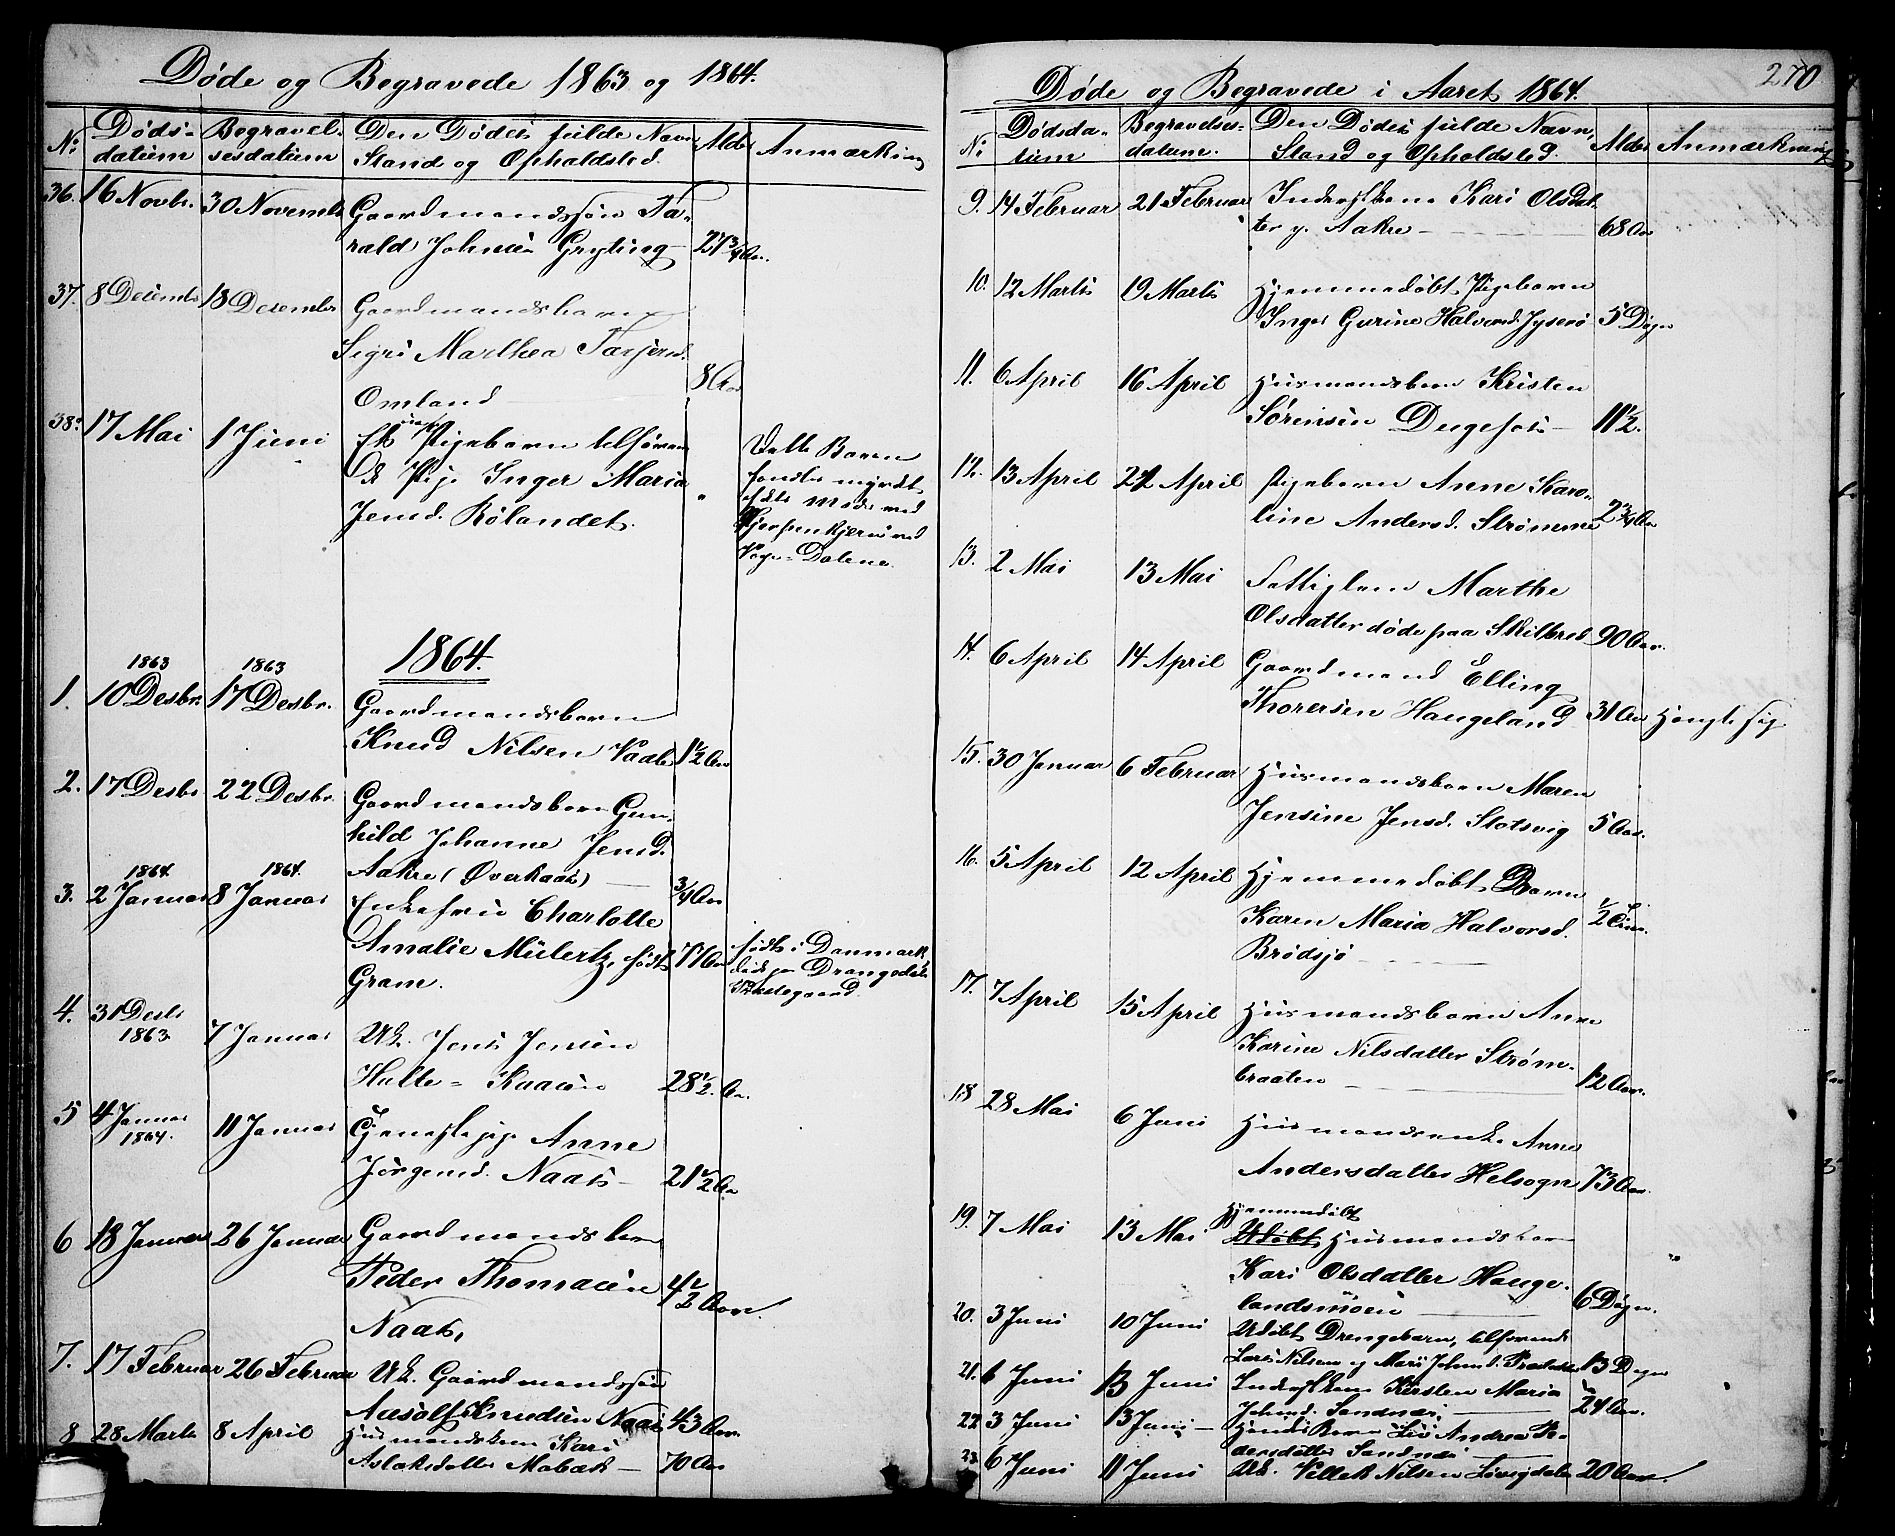 Døde og Begravede 1863 og 1864.
No Dødsdatum Begravelsesdatum Den Dødes fulde Navn, Stand og Opholdsted. Alder Anmærkning
36. 16 Novbr. 30 Novembr Gaardmandssøn Ta-
rald Johnsen Gryting 27 3/4 Aar.
37. 8 Desembr 18 Desember Gaardmandsbarn
Sigri Marthea Tarjersd.
Omland 8 Aar
38. 17 Mai 1 Juni Et Pigebarn tilhøren-
de Pige Inger Maria
Jensd. Rølandet. "
Dette Barn
fandtes myrdet
af dets Moder ved
Dalene.
1864.
1. 1863 10 Desbr. 1863 17 Desbr. Gaardmandsbarn
Knud Nilsen Vaale 1 1/2 Aar
2. 17 Desbr. 22 Desbr. Gaardmandsbarn Gun-
hild Johanne Jensd.
Aakre (Øverkaas) 3/4 Aar
3. 1864. 2 Januar 1864. 8 Januar Enkefru Charlotte
Amalie Mülertz, født
Gram. 77 Aar
født i Danmark
døde paa Drangedals
Præstegaard.
4. 31 Desbr 1863. 7 Januar Uk. Jens Jensen
Hulte- Kaasen 28 1/2 Aar.
5 4 Januar 1864. 11 Januar Tjenestepige Anne
Jørgensd. Naas 21 1/2 Aar
6 18 Januar 26 Januar Gaardmandsbarn
Peder Thomasen
Naas, 4 1/2 Aar.
7. 17 Februar 26 Februar Uk. Gaardmandssøn
Aasolf Knudsen Naas 43 Aar.
8 28 Marts 8 April Husmandskone Kari
Aslaksdatter Mobæk 70 Aar
270
Døde og Begravede i Aaret 1864.
No Dødsdatum Begravelsesdatum. Den Dødes fulde Navn, Stand og Opholdsted. Alder Anmærkning
9. 14 Februar 21 Februar Inderstkone Kari Olsdat-
ter y. Aakre 68 Aar
10. 12 Marts 19 Marts Hjemmedøbt Pigebarn
Inger Gurine Halvorsd. 5 Døgn
11. 6 April 16 April Husmandsbarn Kristen
Sørensen Dugefos 11 1/2.
12. 13 April 22 April Pigebarn Anne Karo-
line Andersd. Strømme 2 3/4 Aar
13. 2 Mai 13 Mai Fattiglem Marthe
Olsdatter døde paa Skilbred 90 Aar.
14. 6 April 14 April Gaardmand Elling
Thorersen Haugeland 31 Aar Hængte sig
15. 30 Januar 6 Februar Husmandsbarn Maren
Jensine Jensd. Slotsvig 5 Aar.
16. 5 April 12 April Hjemmedøbt Barn
Karen Maria Halvorsd.
Brødsjø 1/2 Time.
17. 7 April 15 April Husmandsbarn Anne
Karine Nilsdatter Strøm-
braaten 12 Aar.
18 28 Mai 6 Juni Husmandsenke Anne
Andersdatter Helsogn 73 Aar.
19. 7 Mai 13 Mai Hjemmedøbt
Udøbt Husmandsbarn
Kari Olsdatter Hauge-
landsmoen 6 Døgn.
20. 3 Juni 10 Juni Udøbt Drengebarn, tilhørende
Lars Nilsen og Mari Johnsd. 13 Døgn
21. 1 Juni 13 Juni Inderstkone Kirsten Maria
Johnsd. Sandnæs 24 Aar.
22 3 Juni 13 Juni Hendes Barn Andrea Pe-
dersdatter Sandnæs
23. 6 Juni 11 Juni Uk. Vellek Nilsen 20 Aar.